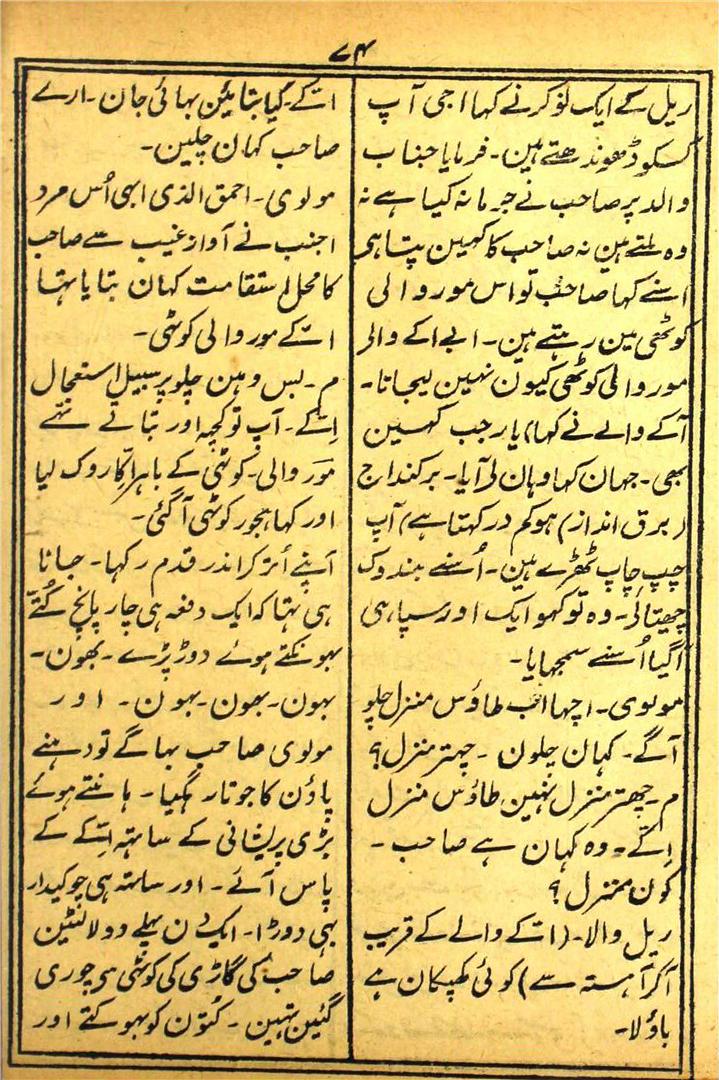 ۷۴
ریل کے ایک نوکر نے کہا اجی آپ
کسکو ڈھونڈھتے ہین۔ فرمایا جناب
والد پر صاحب نے جرمانہ کیا ہے نہ
وہ ملتے ہین نہ صاحب کا کہین پتا ہی
اسنے کہا صاحب تو اس مور والی
کوٹھی مین رہتے ہین۔ ابے اکے والر
مور والی کوٹھی کیون نہین لیجاتا۔
آکے والے نے کہا) یا رجب کہین
بھی۔ جہان کہا وہان لی آیا۔ برکنداج
(برق انداز) ہوکم در کہتا ہے) آپ
چپ چاپ ٹھڑے ہین۔ اُسنے بندوک
چھتالی۔ وہ تو کہو ایک اور سپاہی
آگیا اُسنے سمجہایا۔
مولوی۔ اچہا اب طاؤس منزل چلو
آگے۔ کہان چلون۔ چہتر منزل؟
م۔ چھتر منزل نہین طاؤس منزل
اِکے۔ وہ کہان ہے صاحب۔
کون منزل؟
ریل والا۔ (اکے والے کے قریب
آکر آہستہ سے) کوئی کھپکان ہے
باؤلا۔
اکے۔ کیا بتا ئین بہائی جان۔ ارے
صاحب کہان چلین۔
مولوی۔ احمق الذی ابہی اُس مرد
اجنب نے آواز غیب سے صاحب
کا محل استقامت کہان بتایا تہا
اکے مور والی کوٹہی۔
م۔ بس وہین چلو بر سبیل استعجال
اِکے۔ آپ تو کچہ اور بتاتے تہے
مور والی۔ کوٹہی کے باہر اکا روک لیا
اور کہا ہجور کوٹہی آگئی۔
آپنے اُتر کر اندر قدم رکہا۔ جانا
ہی تہا کہ ایک دفعہ ہی چار پانچ کُتّے
بہونکتے ہوئے دوڑ پڑے۔ بھون۔
بہون۔ بھون۔ بہون۔ اور
مولوی صاحب بہاگے تو دہنے
پاؤن کا جوتا رہگیا۔ ہانتے ہوئے
بڑی پریشانی کے ساتہہ اِکے کے
پاس آئے۔ اور ساتہ ہی چوکیدار
بہی دوڑا۔ ایک دن پہلے دو لالٹین
صاحب کی گاڑی کی کوٹہی ہی چوری
گئین تہین۔ کتون کو بہوکتے اور